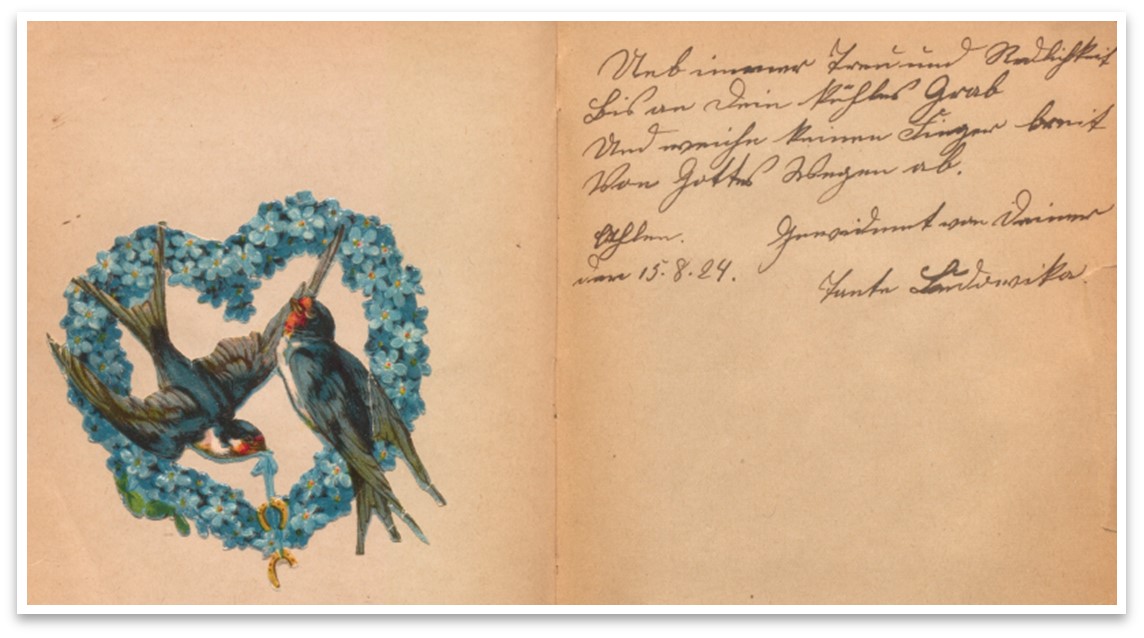 Ueb immer Treu und Redlichkeit
Bis an Dein kühles Grab
Und weiche keinen Finger breit
Von Gottes Wegen ab.
Gewidmet von Deiner
den 15.8.24.
Tante Ludowika